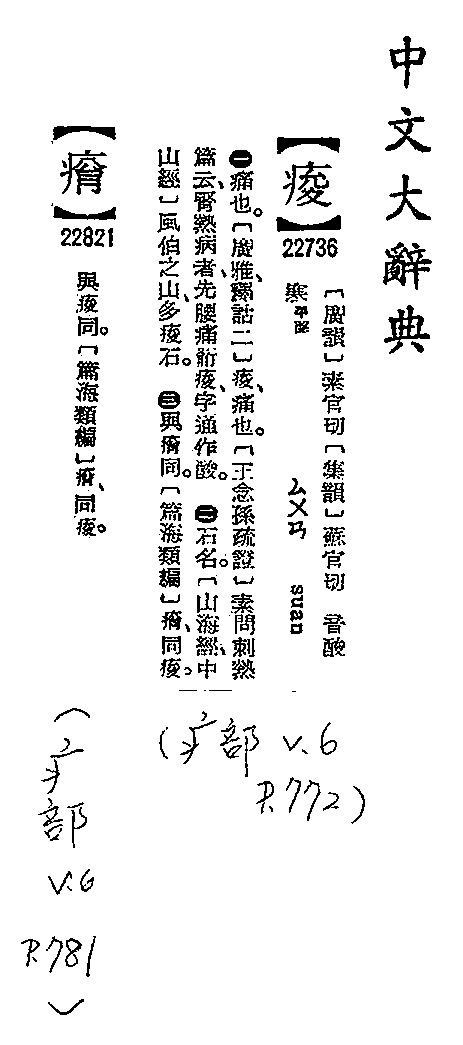 中文大辭典
【痠】
22736
〔廣韻〕素官切〔集韻〕蘇官切　音酸
寒平聲
ㄙㄨㄢ　suan
㊀痛也。〔廣雅、釋詁二〕痠、痛也。〔王念孫疏證〕素問刺熱
篇云、腎熱病者、先腰痛䯒痠、字通作酸。㊁石名。〔山海經、中
山經〕風伯之山、多痠石。㊂與㾭同。〔篇海類編〕㾭、同痠。
(疒部 v.6
P.772)
22821
與痠同。〔篇海類編〕㾭、同痠。
(疒部 v.6 P.781)